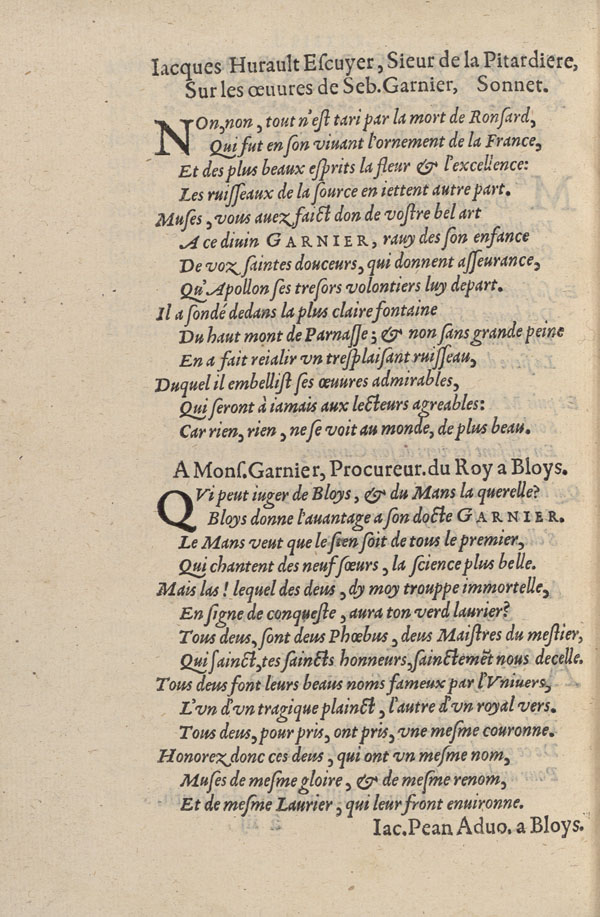 Iacques Hurault Eſcuyer, Sieur de la Pitardiere,
Sur les œuures de Seb. Garnier, Sonnet.
NOn, non, tout n'eſt tari par la mort de Ronſard,
Qui fut en ſon viuant l'ornement de la France,
Et des plus beaux eſprits la fleur & l'excellence:
Les ruiſſeaux de la ſource en iettent autre part.
Muſes, vous auez faict don de voſtre bel art
A ce diuin GARNIER, rauy des ſon enfance
De voz ſaintes douceurs, qui donnent aſſeurance,
Qu'Apollon ſes treſors volontiers luy depart.
Il a ſondé dedans la plus claire fontaine
Du haut mont de Parnaſſe; & non ſans grande peine
En a fait reialir vn treſplaiſant ruiſſeau,
Duquel il embelliſt ſes œuures admirables,
Qui ſeront à iamais aux lecteurs agreables:
Car rien, rien, ne ſe voit au monde, de plus beau.
A Monſ. Garnier, Procureur. du Roy a Bloys.
QVi peut iuger de Bloys, & du Mans la querelle?
Bloys donne l'auantage a ſon docte GARNIER.
Le Mans veut que le ſien ſoit de tous le premier,
Qui chantent des neuf ſœurs, la ſcience plus belle.
Mais las! lequel des deus, dy moy trouppe immortelle,
En ſigne de conqueſte, aura ton verd laurier?
Tous deus, ſont deus Phœbus, deus Maiſtres du meſtier,
Qui ſainct, tes ſaincts honneurs, ſainctemēt nous decelle.
Tous deus font leurs beaus noms fameux par l'Vniuers,
L'vn d'vn tragique plainct, l'autre d'vn royal vers.
Tous deus, pour pris, ont pris, vne meſme couronne.
Honorez donc ces deus, qui ont vn meſme nom,
Muſes de meſme gloire, & de meſme renom,
Et de meſme Laurier, qui leur front enuironne.
Iac. Pean Aduo. a Bloys.